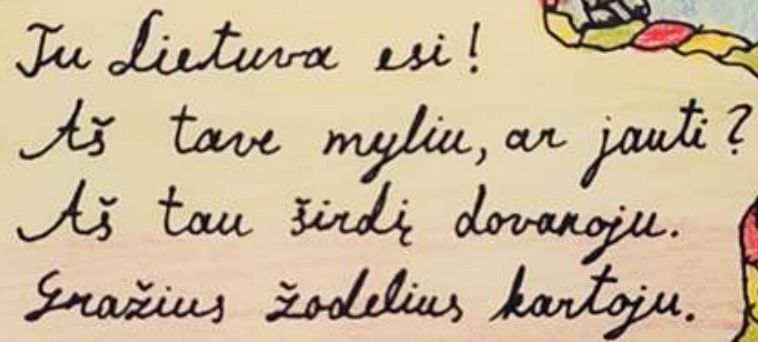 Tu Lietuva esi!
Aš tave myliu, ar jauti?
Aš tau širdį dovanoju.
Gražius žodelius kartoju.